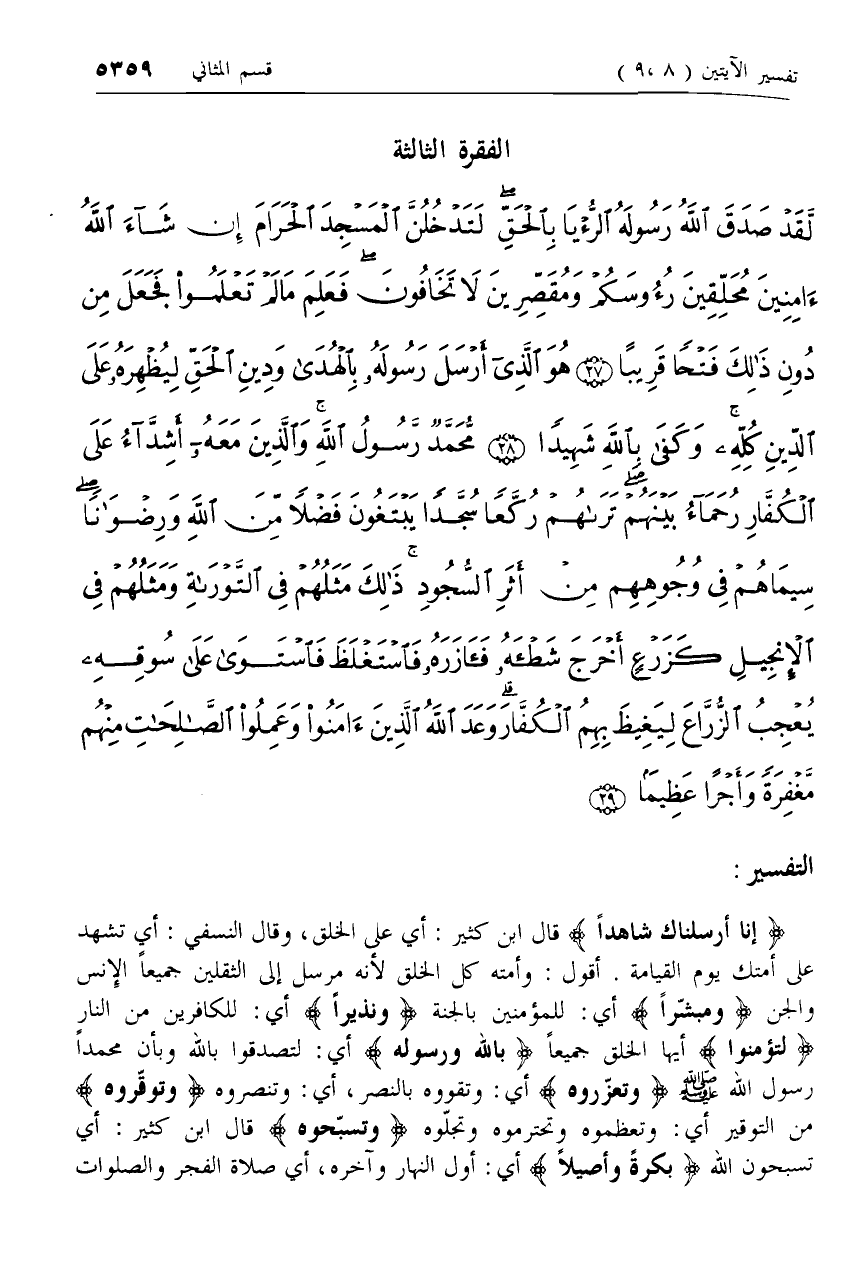 تفسير الآيتين ( ٨ ، ٩ ) قسم المثاني ٥٣٥٩
الفقرة الثالثة
لَّقَدْ صَدَقَ ٱللَّهُ رَسُولَهُ ٱلرُّءْيَا بِٱلْحَقِّ ۖ لَتَدْخُلُنَّ ٱلْمَسْجِدَ ٱلْحَرَامَ إِن شَآءَ ٱللَّهُ
ءَامِنِينَ مُحَلِّقِينَ رُءُوسَكُمْ وَمُقَصِّرِينَ لَا تَخَافُونَ ۖ فَعَلِمَ مَا لَمْ تَعْلَمُوا۟ فَجَعَلَ مِن
دُونِ ذَٰلِكَ فَتْحًا قَرِيبًا ﴿٢٧﴾ هُوَ ٱلَّذِىٓ أَرْسَلَ رَسُولَهُۥ بِٱلْهُدَىٰ وَدِينِ ٱلْحَقِّ لِيُظْهِرَهُۥ عَلَى
ٱلدِّينِ كُلِّهِۦ ۚ وَكَفَىٰ بِٱللَّهِ شَهِيدًا ﴿٢٨﴾ مُّحَمَّدٌ رَّسُولُ ٱللَّهِ ۚ وَٱلَّذِينَ مَعَهُۥٓ أَشِدَّآءُ عَلَى
ٱلْكُفَّارِ رُحَمَآءُ بَيْنَهُمْ ۖ تَرَىٰهُمْ رُكَّعًا سُجَّدًا يَبْتَغُونَ فَضْلًا مِّنَ ٱللَّهِ وَرِضْوَٰنًا ۖ
سِيمَاهُمْ فِى وُجُوهِهِم مِّنْ أَثَرِ ٱلسُّجُودِ ۚ ذَٰلِكَ مَثَلُهُمْ فِى ٱلتَّوْرَىٰةِ وَمَثَلُهُمْ فِى
ٱلْإِنجِيلِ كَزَرْعٍ أَخْرَجَ شَطْـَٔهُۥ فَـَٔازَرَهُۥ فَٱسْتَغْلَظَ فَٱسْتَوَىٰ عَلَىٰ سُوقِهِۦ
يُعْجِبُ ٱلزُّرَّاعَ لِيَغِيظَ بِهِمُ ٱلْكُفَّارَ ۗ وَعَدَ ٱللَّهُ ٱلَّذِينَ ءَامَنُوا۟ وَعَمِلُوا۟ ٱلصَّٰلِحَٰتِ مِنْهُم
مَّغْفِرَةً وَأَجْرًا عَظِيمًۢا ﴿٢٩﴾
التفسير :
﴿ إنا أرسلناك شاهداً ﴾ قال ابن كثير : أي على الخلق ، وقال النسفي : أي تشهد
على أمتك يوم القيامة . أقول : وأمته كل الخلق لأنه مرسل إلى الثقلين جميعاً الإنس
والجن ﴿ ومبشّراً ﴾ أي : للمؤمنين بالجنة ﴿ ونذيراً ﴾ أي : للكافرين من النار
﴿ لتؤمنوا ﴾ أيها الخلق جميعاً ﴿ بالله ورسوله ﴾ أي : لتصدقوا بالله وبأن محمداً
رسول الله ﷺ ﴿ وتعزّروه ﴾ أي : وتقووه بالنصر ، أي : وتنصروه ﴿ وتوقّروه ﴾
من التوقير أي : وتعظموه وتحترموه وتجلّوه ﴿ وتسبّحوه ﴾ قال ابن كثير : أي
تسبحون الله ﴿ بكرةً وأصيلاً ﴾ أي : أول النهار وآخره ، أي صلاة الفجر والصلوات